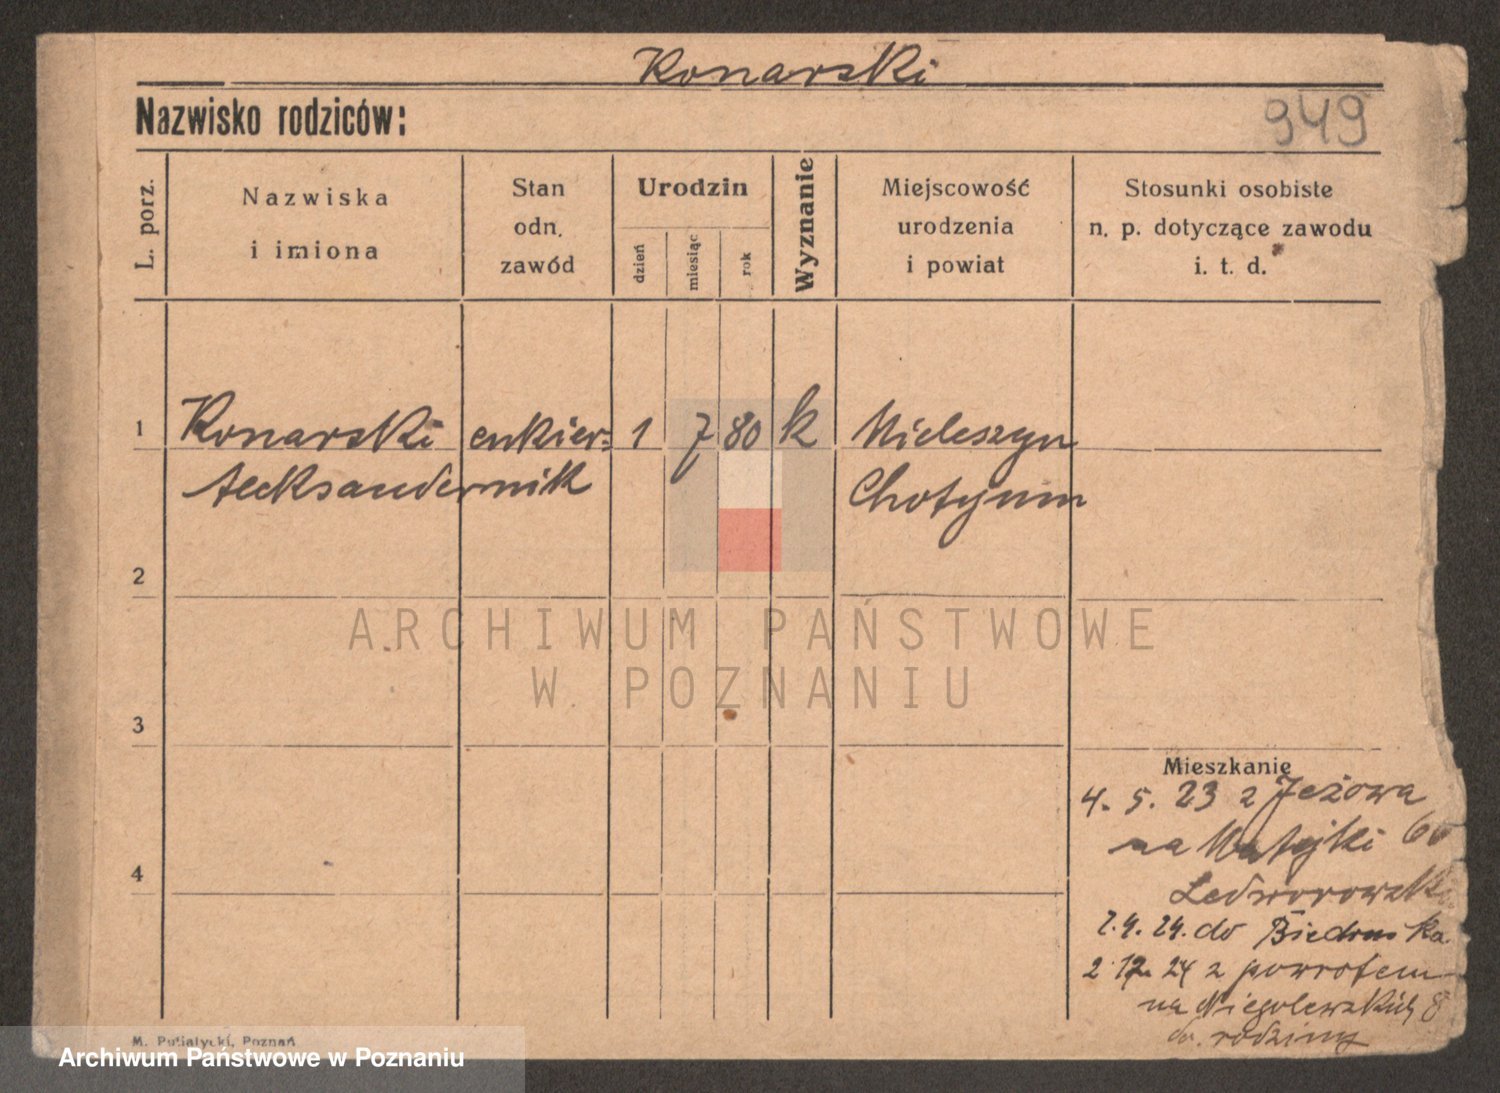 Konarski
Nazwisko rodziców:
949
L. porz.
Nazwiska
i imiona
Stan
odn.
zawód
Urodzin
dzień
miesiąc
rok
Wyznanie
Miejscowość
urodzenia
i powiat
Stosunki osobiste
n. p. dotyczące zawodu
i. t. d.
1 Konarski cukier= 1 7 80 k Mieleszyn
Aleksander nik Chotynin
2
ARCHIWUM PAŃSTWOWE
W POZNANIU
3
Mieszkanie
4. 5. 23 z Jeżowa
na Matejki 60
4
2.4.24. do Biedruska
2 12. 24 z powrotem
na Niegolewskich 8
do. rodziny
M. Putiatycki, Poznań
Archiwum Państwowe w Poznaniu